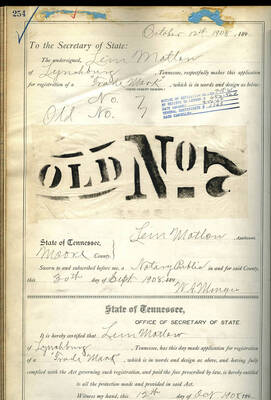 254
October 12th 1908, 189
To the Secretary of State:
The undersigned, Lem Motlow
of Lynchburg, Tennessee, respectfully makes this application
for registration of a "Trade Mark", which is in words and design as below:
No.
Old No. 7
OLD No. 7
Lem Motlow
State of Tennessee,
Moore County.
Sworn to and subscribed before me, a Notary Public in and for said County,
this 30th day of Sept 1908
State of Tennessee,
OFFICE OF SECRETARY OF STATE.
It is hereby certified that Lem Motlow
of Lynchburg Tennessee, has this day made application for registration
of a "Trade Mark", which is in words and design as above, and having fully
complied with the Act governing such registration, and paid the fees prescribed by law, is hereby entitled
to all the protection made and provided in said Act.
Witness my hand, this 12th day of Oct 1908